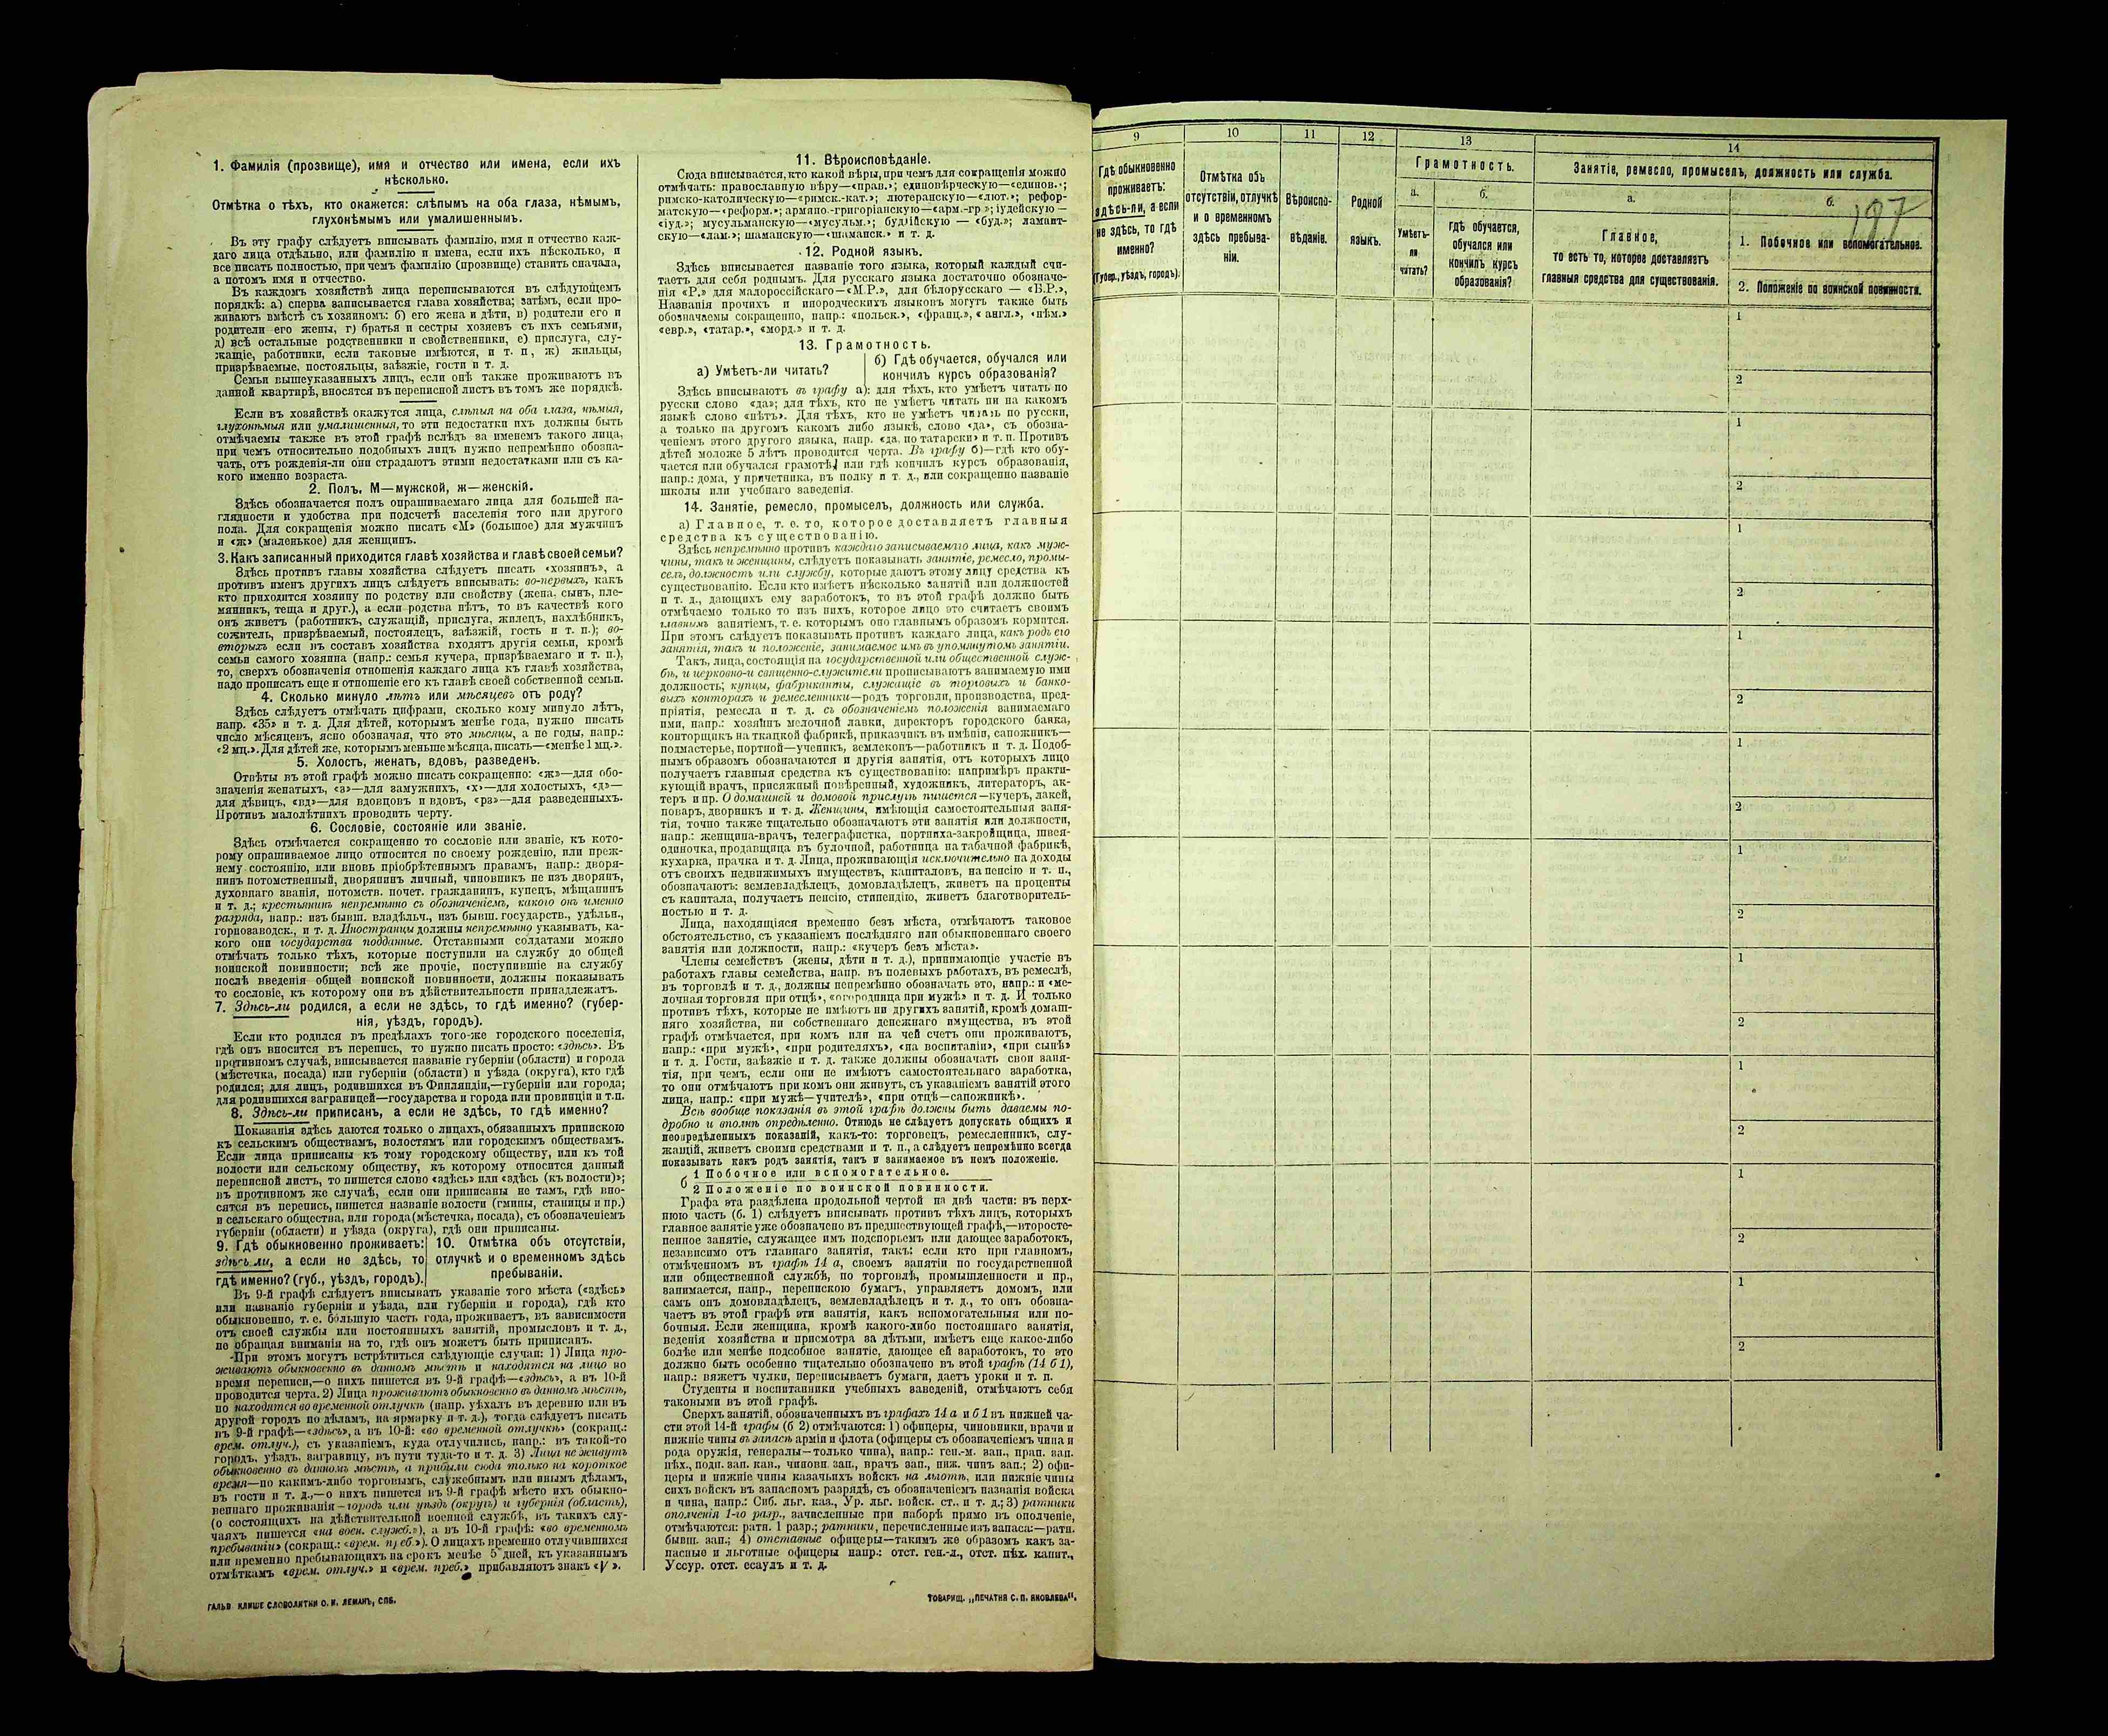 1. Фамилія (прозвище), имя и отчество или имена, если ихъ
нѣсколько.
Отмѣтка о тѣхъ, кто окажется: слѣпымъ на оба глаза, нѣмымъ,
глухонѣмымъ или умалишеннымъ.
Въ эту графу слѣдуетъ вписывать фамилію, имя и отчество каж-
даго лица отдѣльно, или фамилію и имена, если ихъ нѣсколько, и
все писать полностью, при чемъ фамилію (прозвище) ставить сначала,
а потомъ имя и отчество.
Въ каждомъ хозяйствѣ лица переписываются въ слѣдующемъ
порядкѣ: а) сперва записывается глава хозяйства; затѣмъ, если про-
живаютъ вмѣстѣ съ хозяиномъ: б) его жена и дѣти, в) родители его и
родители его жены, г) братья и сестры хозяевъ съ ихъ семьями,
д) всѣ остальные родственники и свойственники, е) прислуга, слу-
жащіе, работники, если таковые имѣются, и т. п, ж) жильцы,
призрѣваемые, постояльцы, заѣзжіе, гости и т. д.
Семьи вышеуказанныхъ лицъ, если онѣ также проживаютъ въ
данной квартирѣ, вносятся въ переписной листъ въ томъ же порядкѣ.
Если въ хозяйствѣ окажутся лица, слѣпыя на оба глаза, нѣмыя,
глухонѣмыя или умалишенныя, то эти недостатки ихъ должны быть
отмѣчаемы также въ этой графѣ вслѣдъ за именемъ такого лица,
при чемъ относительно подобныхъ лицъ нужно непремѣнно обозна-
чать, отъ рожденія-ли они страдаютъ этими недостатками или съ ка-
кого именно возраста.
2. Полъ. М—мужской, ж—женскій.
Здѣсь обозначается полъ опрашиваемаго лица для большей на-
глядности и удобства при подсчетѣ населенія того или другого
пола. Для сокращенія можно писать «М» (большое) для мужчинъ
и «ж» (маленькое) для женщинъ.
3. Какъ записанный приходится главѣ хозяйства и главѣ своей семьи?
Здѣсь противъ главы хозяйства слѣдуетъ писать «хозяинъ», а
противъ именъ другихъ лицъ слѣдуетъ вписывать: во-первыхъ, какъ
кто приходится хозяину по родству или свойству (жена, сынъ, пле-
мянникъ, теща и друг.), а если родства нѣтъ, то въ качествѣ кого
онъ живетъ (работникъ, служащій, прислуга, жилецъ, нахлѣбникъ,
сожитель, призрѣваемый, постоялецъ, заѣзжій, гость и т. п.); во-
вторыхъ если въ составъ хозяйства входятъ другія семьи, кромѣ
семьи самого хозяина (напр.: семья кучера, призрѣваемаго и т. п.),
то, сверхъ обозначенія отношенія каждаго лица къ главѣ хозяйства,
надо прописать еще и отношеніе его къ главѣ своей собственной семьи.
4. Сколько минуло лѣтъ или мѣсяцевъ отъ роду?
Здѣсь слѣдуетъ отмѣчать цифрами, сколько кому минуло лѣтъ,
напр. «35» и т. д. Для дѣтей, которымъ менѣе года, нужно писать
число мѣсяцевъ, ясно обозначая, что это мѣсяцы, а не годы, напр.:
«2 мц.». Для дѣтей же, которымъ меньше мѣсяца, писать—«менѣе 1 мц.».
5. Холостъ, женатъ, вдовъ, разведенъ.
Отвѣты въ этой графѣ можно писать сокращенно: «ж»—для обо-
значенія женатыхъ, «з»—для замужнихъ, «х»—для холостыхъ, «д»—
для дѣвицъ, «вд»—для вдовцовъ и вдовъ, «рз»—для разведенныхъ.
Противъ малолѣтнихъ проводить черту.
6. Сословіе, состояніе или званіе.
Здѣсь отмѣчается сокращенно то сословіе или званіе, къ кото-
рому опрашиваемое лицо относится по своему рожденію, или преж-
нему состоянію, или вновь пріобрѣтеннымъ правамъ, напр.: дворя-
нинъ потомственный, дворянинъ личный, чиновникъ не изъ дворянъ,
духовнаго званія, потомств. почет. гражданинъ, купецъ, мѣщанинъ
и т. д.; крестьянинъ непремѣнно съ обозначеніемъ, какого онъ именно
разряда, напр.: изъ бывш. владѣльч., изъ бывш. государств., удѣльн.,
горнозаводск., и т. д. Иностранцы должны непремѣнно указывать, ка-
кого они государства подданные. Отставными солдатами можно
отмѣчать только тѣхъ, которые поступили на службу до общей
воинской повинности; всѣ же прочіе, поступившіе на службу
послѣ введенія общей воинской повинности, должны показывать
то сословіе, къ которому они въ дѣйствительности принадлежатъ.
7. Здѣсь-ли родился, а если не здѣсь, то гдѣ именно? (губер-
нія, уѣздъ, городъ).
Если кто родился въ предѣлахъ того-же городского поселенія,
гдѣ онъ вносится въ перепись, то нужно писать просто: «здѣсь». Въ
противномъ случаѣ, вписывается названіе губерніи (области) и города
(мѣстечка, посада) или губерніи (области) и уѣзда (округа), кто гдѣ
родился; для лицъ, родившихся въ Финляндіи,—губерніи или города;
для родившихся заграницей—государства и города или провинціи и т.п.
8. Здѣсь-ли приписанъ, а если не здѣсь, то гдѣ именно?
Показанія здѣсь даются только о лицахъ, обязанныхъ припискою
къ сельскимъ обществамъ, волостямъ или городскимъ обществамъ.
Если лица приписаны къ тому городскому обществу, или къ той
волости или сельскому обществу, къ которому относится данный
переписной листъ, то пишется слово «здѣсь» или «здѣсь (къ волости)»;
въ противномъ же случаѣ, если они приписаны не тамъ, гдѣ вно-
сятся въ перепись, пишется названіе волости (гмины, станицы и пр.)
и сельскаго общества, или города (мѣстечка, посада), съ обозначеніемъ
губерніи (области) и уѣзда (округа), гдѣ они приписаны.
9. Гдѣ обыкновенно проживаетъ:
здѣсь ли, а если но здѣсь, то
гдѣ именно? (губ., уѣздъ, городъ).
10. Отмѣтка объ отсутствіи,
отлучкѣ и о временномъ здѣсь
пребываніи.
Въ 9-й графѣ слѣдуетъ вписывать указаніе того мѣста («здѣсь»
или названіе губерніи и уѣзда, или губерніи и города), гдѣ кто
обыкновенно, т. е. бо́льшую часть года, проживаетъ, въ зависимости
отъ своей службы или постоянныхъ занятій, промысловъ и т. д.,
не обращая вниманія на то, гдѣ онъ можетъ быть приписанъ.
При этомъ могутъ встрѣтиться слѣдующіе случаи: 1) Лица про-
живаютъ обыкновенно въ данномъ мѣстѣ и находятся на лицо во
время переписи,—о нихъ пишется въ 9-й графѣ—«здѣсь», а въ 10-й
проводится черта. 2) Лица проживаютъ обыкновенно въ данномъ мѣстѣ,
но находятся во временной отлучкѣ (напр. уѣхалъ въ деревню или въ
другой городъ по дѣламъ, на ярмарку и т. д.), тогда слѣдуетъ писать
въ 9-й графѣ—«здѣсь», а въ 10-й: «во временной отлучкѣ» (сокращ.:
врем. отлуч.), съ указаніемъ, куда отлучились, напр.: въ такой-то
городъ, уѣздъ, заграницу, въ пути туда-то и т. д. 3) Лица не живутъ
обыкновенно въ данномъ мѣстѣ, а прибыли сюда только на короткое
время—по какимъ-либо торговымъ, служебнымъ или инымъ дѣламъ,
въ гости и т. д.,—о нихъ пишется въ 9-й графѣ мѣсто ихъ обыкно-
веннаго проживанія—городъ или уѣздъ (округъ) и губернія (область),
(о состоящихъ на дѣйствительной военной службѣ, въ такихъ слу-
чаяхъ пишется «на воен. служб.»), а въ 10-й графѣ: «во временномъ
пребываніи» (сокращ.: «врем. преб.»). О лицахъ временно отлучившихся
или временно пребывающихъ на срокъ менѣе 5 дней, къ указаннымъ
отмѣткамъ «врем. отлуч.» и «врем. преб.» прибавляютъ знакъ «V».
ГАЛЬВ. КЛИШЕ СЛОВОЛИТНИ О. И. ЛЕМАНЪ, СПБ.
11. Вѣроисповѣданіе.
Сюда вписывается, кто какой вѣры, при чемъ для сокращенія можно
отмѣчать: православную вѣру—«прав.»; единовѣрческую—«единов.»;
римско-католическую—«римск.-кат.»; лютеранскую—«лют.»; рефор-
матскую—«реформ.»; армяно-григоріанскую—«арм.-гр.»; іудейскую—
«іуд.»; мусульманскую—«мусульм.»; буддійскую — «буд.»; ламаит-
скую—«лам.»; шаманскую—«шаманск.» и т. д.
12. Родной языкъ.
Здѣсь вписывается названіе того языка, который каждый счи-
таетъ для себя роднымъ. Для русскаго языка достаточно обозначе-
нія «Р.» для малороссійскаго—«М.Р.», для бѣлорусскаго — «Б.Р.»,
Названія прочихъ и инородческихъ языковъ могутъ также быть
обозначаемы сокращенно, напр.: «польск.», «франц.», «англ.», «нѣм.»
«евр.», «татар.», «морд.» и т. д.
13. Грамотность.
а) Умѣетъ-ли читать?
б) Гдѣ обучается, обучался или
кончилъ курсъ образованія?
Здѣсь вписываютъ въ графу а): для тѣхъ, кто умѣетъ читать по
русски слово «да»; для тѣхъ, кто не умѣетъ читать ни на какомъ
языкѣ слово «нѣтъ». Для тѣхъ, кто не умѣетъ читать по русски,
а только на другомъ какомъ либо языкѣ, слово «да», съ обозна-
ченіемъ этого другого языка, напр. «да, по татарски» и т. п. Противъ
дѣтей моложе 5 лѣтъ проводится черта. Въ графу б)—гдѣ кто обу-
чается или обучался грамотѣ, или гдѣ кончилъ курсъ образованія,
напр.: дома, у причетника, въ полку и т. д., или сокращенно названіе
школы или учебнаго заведенія.
14. Занятіе, ремесло, промыселъ, должность или служба.
а) Главное, т. е. то, которое доставляетъ главныя
средства къ существованію.
Здѣсь непремѣнно противъ каждаго записываемаго лица, какъ муж-
чины, такъ и женщины, слѣдуетъ показывать занятіе, ремесло, промы-
селъ, должность или службу, которые даютъ этому лицу средства къ
существованію. Если кто имѣетъ нѣсколько занятій или должностей
и т. д., дающихъ ему заработокъ, то въ этой графѣ должно быть
отмѣчаемо только то изъ нихъ, которое лицо это считаетъ своимъ
главнымъ занятіемъ, т. е. которымъ оно главнымъ образомъ кормится.
При этомъ слѣдуетъ показывать противъ каждаго лица, какъ родъ его
занятія, такъ и положеніе, занимаемое имъ въ упомянутомъ занятіи.
Такъ, лица, состоящія на государственной или общественной служ-
бѣ, и церковно-и священно-служители прописываютъ занимаемую ими
должность; купцы, фабриканты, служащіе въ торговыхъ и банко-
выхъ конторахъ и ремесленники—родъ торговли, производства, пред-
пріятія, ремесла и т. д. съ обозначеніемъ положенія занимаемаго
ими, напр.: хозяинъ мелочной лавки, директоръ городского банка,
конторщикъ на ткацкой фабрикѣ, приказчикъ въ имѣніи, сапожникъ—
подмастерье, портной—ученикъ, землекопъ—работникъ и т. д. Подоб-
нымъ образомъ обозначаются и другія занятія, отъ которыхъ лицо
получаетъ главныя средства къ существованію: напримѣръ практи-
кующій врачъ, присяжный повѣренный, художникъ, литераторъ, ак-
теръ и пр. О домашней и домовой прислугѣ пишется—кучеръ, лакей,
поваръ, дворникъ и т. д. Женщины, имѣющія самостоятельныя заня-
тія, точно также тщательно обозначаютъ эти занятія или должности,
напр.: женщина-врачъ, телеграфистка, портниха-закройщица, швея-
одиночка, продавщица въ булочной, работница на табачной фабрикѣ,
кухарка, прачка и т. д. Лица, проживающія исключительно на доходы
отъ своихъ недвижимыхъ имуществъ, капиталовъ, на пенсію и т. п.,
обозначаютъ: землевладѣлецъ, домовладѣлецъ, живетъ на проценты
съ капитала, получаетъ пенсію, стипендію, живетъ благотворитель-
ностью и т. д.
Лица, находящіяся временно безъ мѣста, отмѣчаютъ таковое
обстоятельство, съ указаніемъ послѣдняго или обыкновеннаго своего
занятія или должности, напр.: «кучеръ безъ мѣста».
Члены семействъ (жены, дѣти и т. д.), принимающіе участіе въ
работахъ главы семейства, напр. въ полевыхъ работахъ, въ ремеслѣ,
въ торговлѣ и т. д., должны непремѣнно обозначать это, напр.: и «ме-
лочная торговля при отцѣ», «огородница при мужѣ» и т. д. И только
противъ тѣхъ, которые не имѣютъ ни другихъ занятій, кромѣ домаш-
няго хозяйства, ни собственнаго денежнаго имущества, въ этой
графѣ отмѣчается, при комъ или на чей счетъ они проживаютъ,
напр.: «при мужѣ», «при родителяхъ», «на воспитаніи», «при сынѣ»
и т. д. Гости, заѣзжіе и т. д. также должны обозначать свои заня-
тія, при чемъ, если они не имѣютъ самостоятельнаго заработка,
то они отмѣчаютъ при комъ они живутъ, съ указаніемъ занятій этого
лица, напр.: «при мужѣ—учителѣ», «при отцѣ—сапожникѣ».
Всѣ вообще показанія въ этой графѣ должны быть даваемы по-
дробно и вполнѣ опредѣленно. Отнюдь не слѣдуетъ допускать общихъ и
неопредѣленныхъ показаній, какъ-то: торговецъ, ремесленникъ, слу-
жащій, живетъ своими средствами и т. п., а слѣдуетъ непремѣнно всегда
показывать какъ родъ занятія, такъ и занимаемое въ немъ положеніе.
б 1 Побочное или вспомогательное.
2 Положеніе по воинской повинности.
Графа эта раздѣлена продольной чертой на двѣ части: въ верх-
нюю часть (б. 1) слѣдуетъ вписывать противъ тѣхъ лицъ, которыхъ
главное занятіе уже обозначено въ предшествующей графѣ,—второсте-
пенное занятіе, служащее имъ подспорьемъ или дающее заработокъ,
независимо отъ главнаго занятія, такъ: если кто при главномъ,
отмѣченномъ въ графѣ 14 а, своемъ занятіи по государственной
или общественной службѣ, по торговлѣ, промышленности и пр.,
занимается, напр., перепискою бумагъ, управляетъ домомъ, или
самъ онъ домовладѣлецъ, землевладѣлецъ и т. д., то онъ обозна-
чаетъ въ этой графѣ эти занятія, какъ вспомогательныя или по-
бочныя. Если женщина, кромѣ какого-либо постояннаго занятія,
веденія хозяйства и присмотра за дѣтьми, имѣетъ еще какое-либо
болѣе или менѣе подсобное занятіе, дающее ей заработокъ, то это
должно быть особенно тщательно обозначено въ этой графѣ (14 б 1),
напр.: вяжетъ чулки, переписываетъ бумаги, даетъ уроки и т. п.
Студенты и воспитанники учебныхъ заведеній, отмѣчаютъ себя
таковыми въ этой графѣ.
Сверхъ занятій, обозначенныхъ въ графахъ 14 а и б 1 въ нижней ча-
сти этой 14-й графы (б 2) отмѣчаются: 1) офицеры, чиновники, врачи и
нижніе чины въ запасѣ арміи и флота (офицеры съ обозначеніемъ чина и
рода оружія, генералы—только чина), напр.: ген.-м. зап., прап. зап.
пѣх., подп. зап. кав., чиновн. зап., врачъ зап., ниж. чинъ зап.; 2) офи-
церы и нижніе чины казачьихъ войскъ на льготѣ, или нижніе чины
сихъ войскъ въ запасномъ разрядѣ, съ обозначеніемъ названія войска
и чина, напр.: Сиб. льг. каз., Ур. льг. войск. ст.. и т. д.; 3) ратники
ополченія 1-го разр., зачисленные при наборѣ прямо въ ополченіе,
отмѣчаются: ратн. 1 разр.; ратники, перечисленные изъ запаса:—ратн.
бывш. зап.; 4) отставные офицеры—такимъ же образомъ какъ за-
пасные и льготные офицеры напр.: отст. ген.-л., отст. пѣх. капит.,
Уссур. отст. есаулъ и т. д.
ТОВАРИЩ. „ПЕЧАТНЯ С. П. ЯКОВЛЕВА“.
9 10 11 12 13 14
Гдѣ обыкновенно
проживаетъ:
здѣсь-ли, а если
не здѣсь, то гдѣ
именно?
(Губер., уѣздъ, городъ).
Отмѣтка объ
отсутствіи, отлучкѣ
и о временномъ
здѣсь пребыва-
ніи.
Вѣроиспо-
вѣданіе.
Родной
языкъ.
Грамотность.
а.
Умѣетъ-
ли
читать?
б.
Гдѣ обучается,
обучался или
кончилъ курсъ
образованія?
Занятіе, ремесло, промыселъ, должность или служба.
а.
Главное,
то есть то, которое доставляетъ
главныя средства для существованія.
б.
197
1. Побочное или вспомогательное.
2. Положеніе по воинской повинности.
1
2
1
2
1
2
1
2
1
2
1
2
1
2
1
2
1
2
1
2